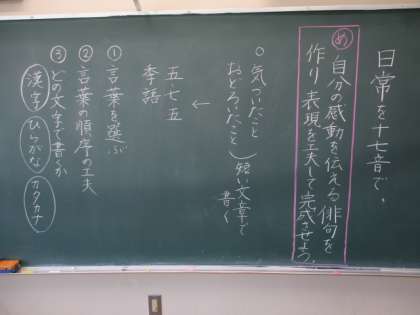 日常を十七音で、
め 自分の感動を伝える俳句を
作り、表現を工夫して完成させよう。
○気づいたこと
おどろいたこと
短い文章で
書く
↓
五・七・五
季語
①言葉を選ぶ
②言葉の順序の工夫
③どの文字で書くか
漢字 ひらがな カタカナ